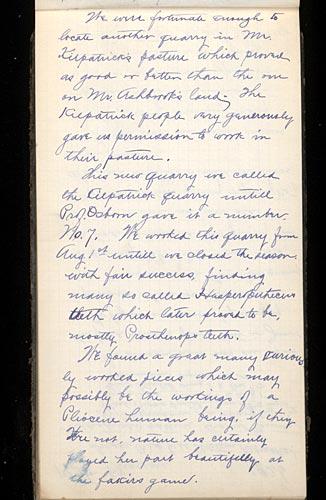 We were fortunate enough to
locate another quarry in Mr.
Kilpatrick's pasture which proved
as good or better than the one
on Mr. Ashbrook's land. The
Kilpatrick people very generously
gave us permission to work in
their pasture.
This new quarry we called
the Kilpatrick quarry untill
Prof. Osborn gave it a number.
No. 7. We worked this quarry from
Aug. 1st untill we closed the season
with fair success, finding
many so called Hesperopithecus
teeth which later proved to be,
mostly Prosthenops teeth.
We found a great many curious
ly worked pieces which may
possibly be the workings of a
Pliocene human being, if they
are not, nature has certainly
played her part beautifully at
the fakirs game.